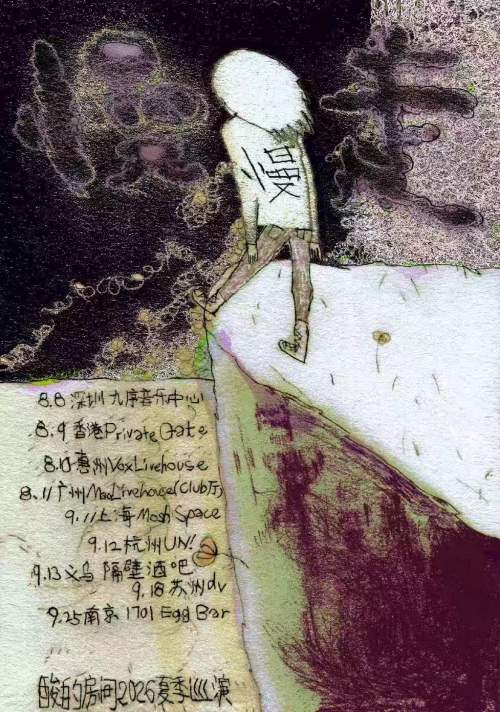 慢走
慢
8.8 深圳 九序音乐中心
8.9 香港 Private Gate
8.10 惠州 Vox Livehouse
8.11 广州 Mao Livehouse(Club厅)
9.11 上海 Mosh Space
9.12 杭州 UN!
9.13 义乌 隔壁酒吧
9.18 苏州 dv
9.25 南京 1701 Egg Bar
的房间2026夏季巡演